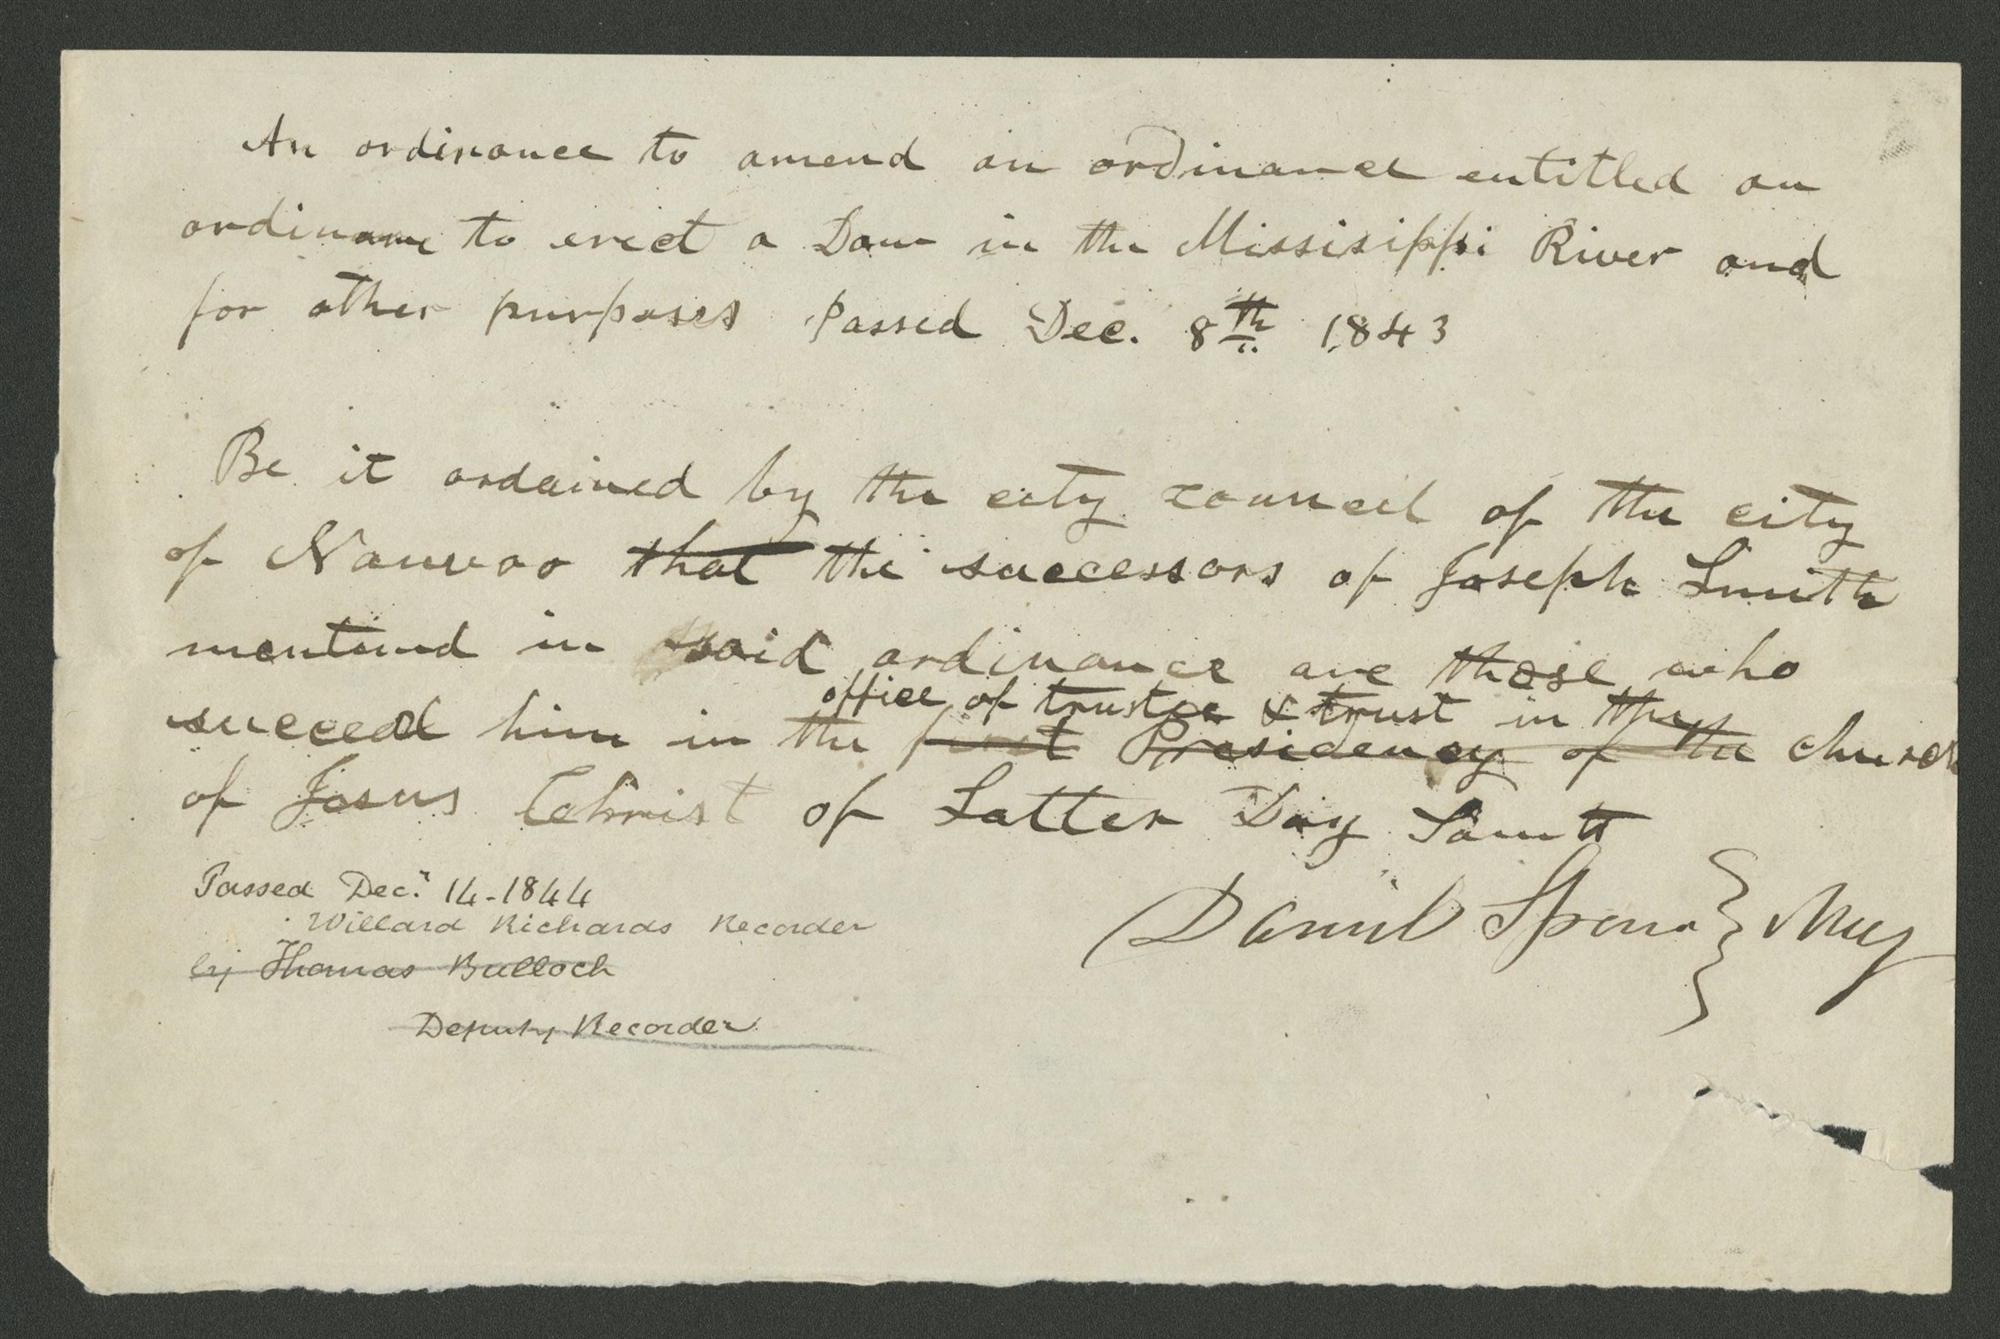 An ordinance to amend an ordinance entitled an
ordinane to erect a Dam in the Missisippi River and
for other purposes Passed Dec. 8th 1843
Be it ordained by the city council of the city
of Nauvoo that the successors of Joseph Smith
mentined in said ordinance are those who
office of trustee & trust in the
succeed him in the first Presidency of the church
of Jesus Christ of Latter Day Saints
Passed Decr 14-1844
Willard Richards Recorder
by Thomas Bullock
Deputy Recorder
Daniel Spencer